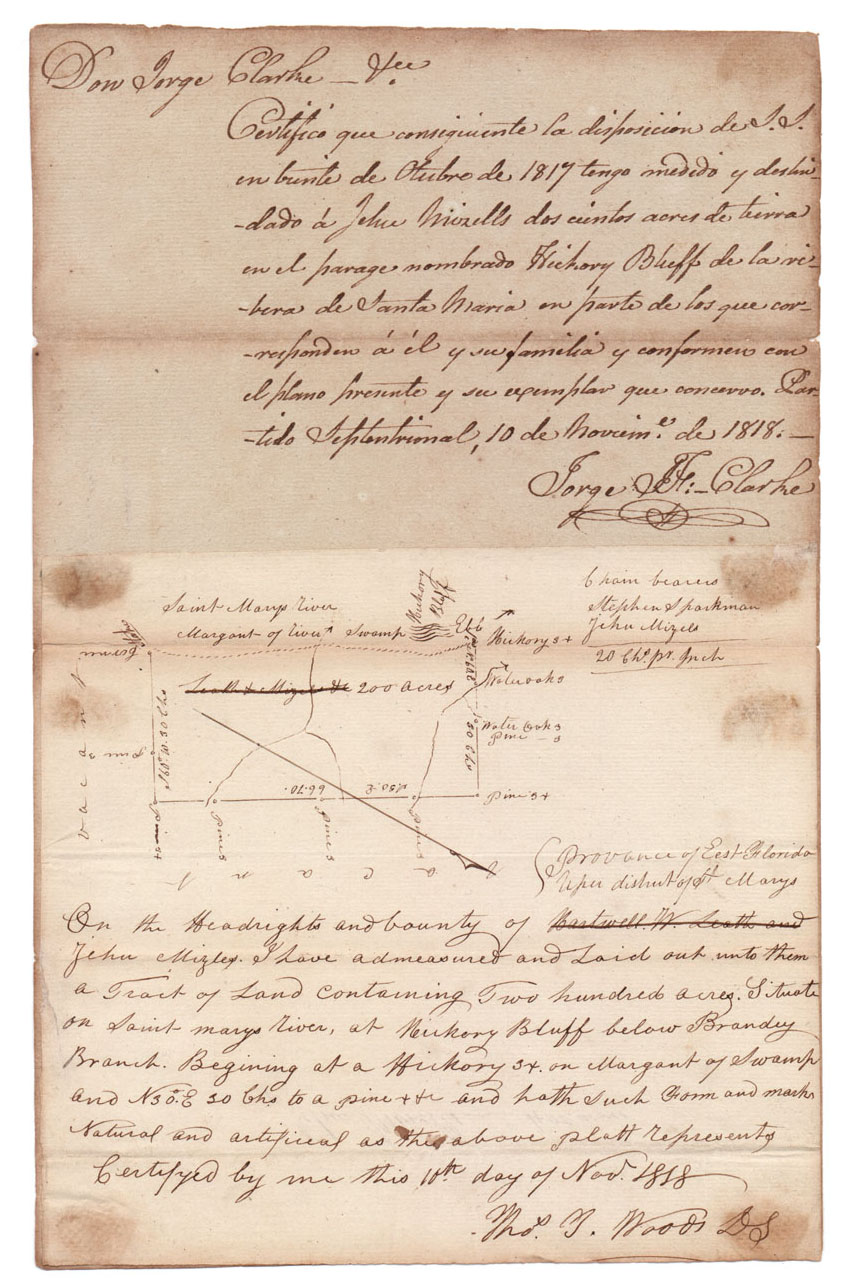 Don Jorge Clarke — &ee
Certifico que consiguiente la disposicion de S.S.
en bunte de Otubre de 1817 tengo medido y deslin-
-dado á Jehu Mizells dos cientos acres de tierra
en el parage nombrado Hickory Bluff de la ri-
-bera de Santa Maria en parte de los que cor-
-responden á él y su familia y conformen con
el plano presente y su exemplar que concervo. Par-
-tido Septentrional, 10 de Noviem.e de 1818. —
Jorge J. F. :- Clarke
Saint Marys river
Margant of river Swamp
Hickory
Bluff
Ebb
Hickory 3+
Chain bearers
Stephen Sparkman
Jehu Mizels
20 Chs. pr. Inch
200 acres
Water oak 3
Water oak 3
Pine — 3
Pine 3+
30 Chs
S60° W. 30 Chs
Pine 3
66.70.
Pine 3
Pine 3
Pine 3
vacant
vacant
Provance of East Florida
Uper district of St Marys
On the Headrights and bounty of Hartwell W. Leath and
Jehu Mizles. I have admeasured and Laid out unto them
a Tract of Land containing Two hundred acres. Situate
on Saint marys river, at Hickory Bluff below Brandey
Branch. Begining at a Hickory 3+. on Margant of Swamp
and N30°. E 30 Chs to a pine + &c and hath such Form and marks
Natural and artificeal as the above platt represents
Certifyed by me this 10th day of Nov. 1818
Thos. J. Woods D S